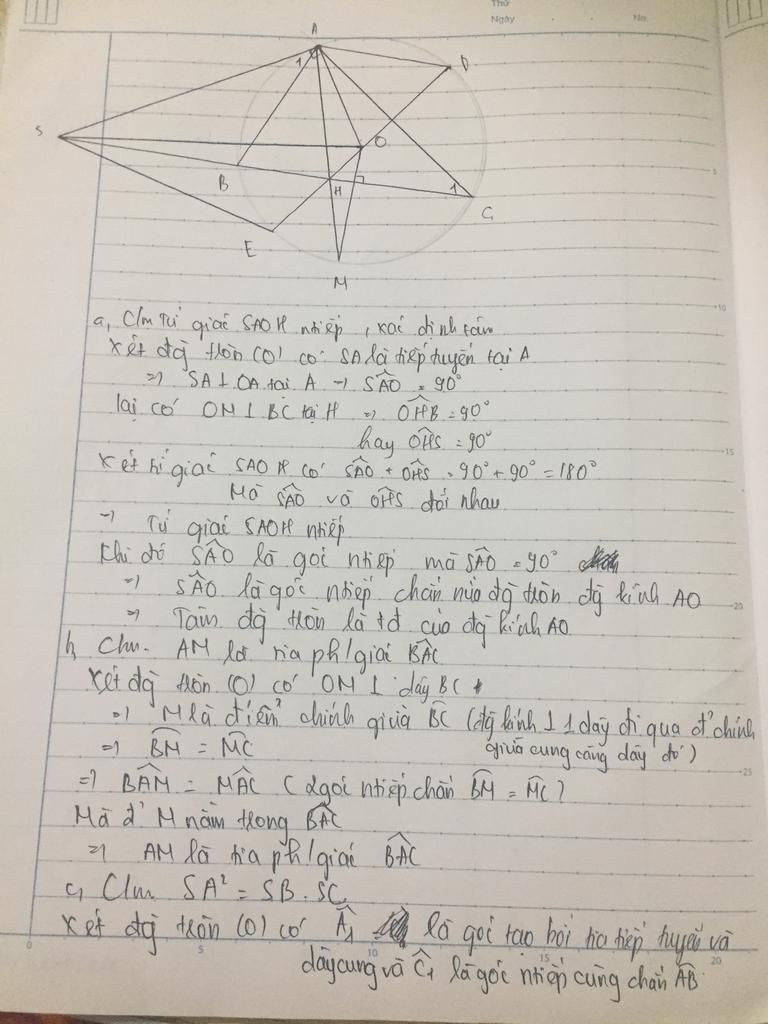 Thứ
Ngày No.
A
1
D
S
O
B
H
1
C
E
M
a, C/m Tứ giác SAOH ntiếp, xác định tâm
Xét đg tròn (O) có SA là tiếp tuyến tại A
=> SA ⊥ OA tại A => SÂO = 90°
lại có OM ⊥ BC tại H => OĤB = 90°
hay OĤS = 90°
Xét tứ giác SAOH có SÂO + OĤS = 90° + 90° = 180°
Mà SÂO và OĤS đối nhau
=> Tứ giác SAOH ntiếp
Khi đó SÂO là góc ntiếp mà SÂO = 90°
=> SÂO là góc ntiếp chắn nửa đg tròn đg kính AO
=> Tâm đg tròn là tđ của đg kính AO
b, Cm. AM là tia ph/giác BÂC
Xét đg tròn (O) có OM ⊥ dây BC
=> M là điểm chính giữa BC (đg kính ⊥ 1 dây đi qua đ' chính
giữa cung căng dây đó)
=> BM = MC
=> BÂM = MÂC (2 góc ntiếp chắn BM = MC)
Mà đ' M nằm trong BÂC
=> AM là tia ph/giác BÂC
c, C/m SA² = SB . SC
Xét đg tròn (O) có Â1 là góc tạo bởi tia tiếp tuyến và
dây cung và Ĉ1 là góc ntiếp cùng chắn AB
5
10
15
20
25
0 5 10 15 20